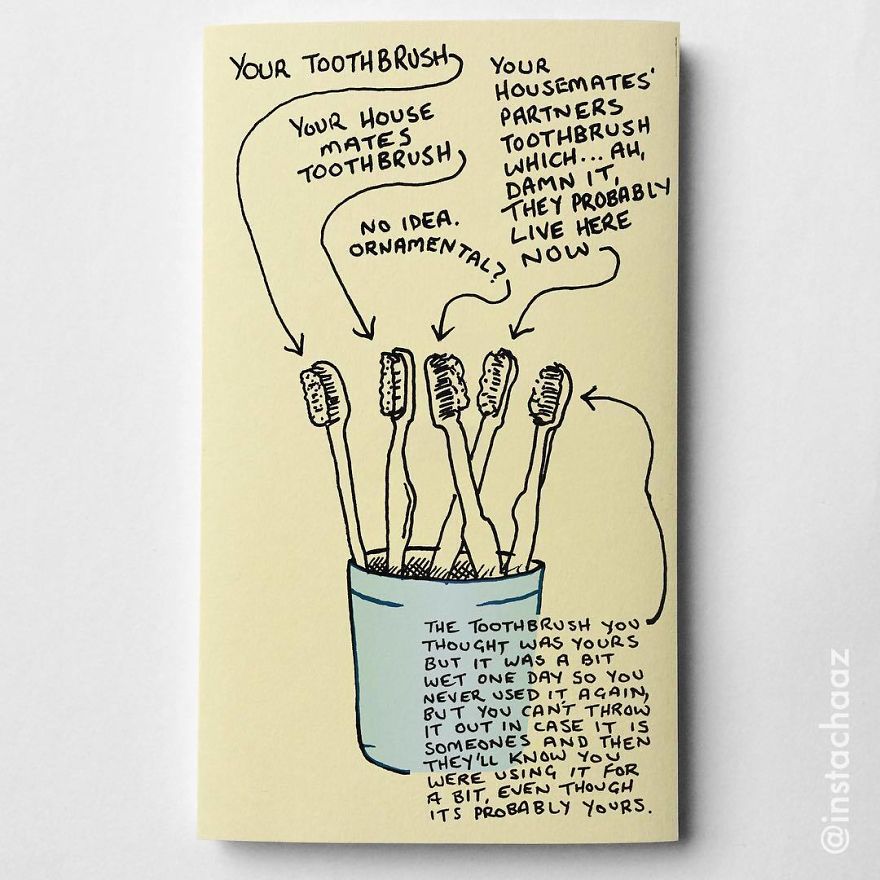 YOUR TOOTHBRUSH
YOUR HOUSE
MATES
TOOTHBRUSH
NO IDEA.
ORNAMENTAL?
YOUR
HOUSEMATES'
PARTNERS
TOOTHBRUSH
WHICH... AH,
DAMN IT,
THEY PROBABLY
LIVE HERE
NOW
THE TOOTHBRUSH YOU
THOUGHT WAS YOURS
BUT IT WAS A BIT
WET ONE DAY SO YOU
NEVER USED IT AGAIN,
BUT YOU CAN'T THROW
IT OUT IN CASE IT IS
SOMEONES AND THEN
THEY'LL KNOW YOU
WERE USING IT FOR
A BIT, EVEN THOUGH
ITS PROBABLY YOURS.
@instachaaz